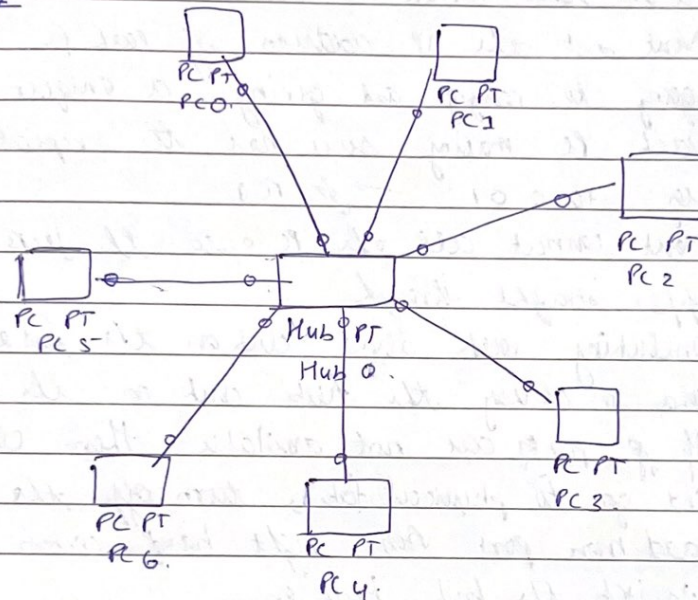 PC PT
PC0.
PC PT
PC1
PC PT
PC 2
PC PT
PC 5
Hub PT
Hub 0.
PC PT
PC 3
PC PT
PC 6.
PC PT
PC 4.